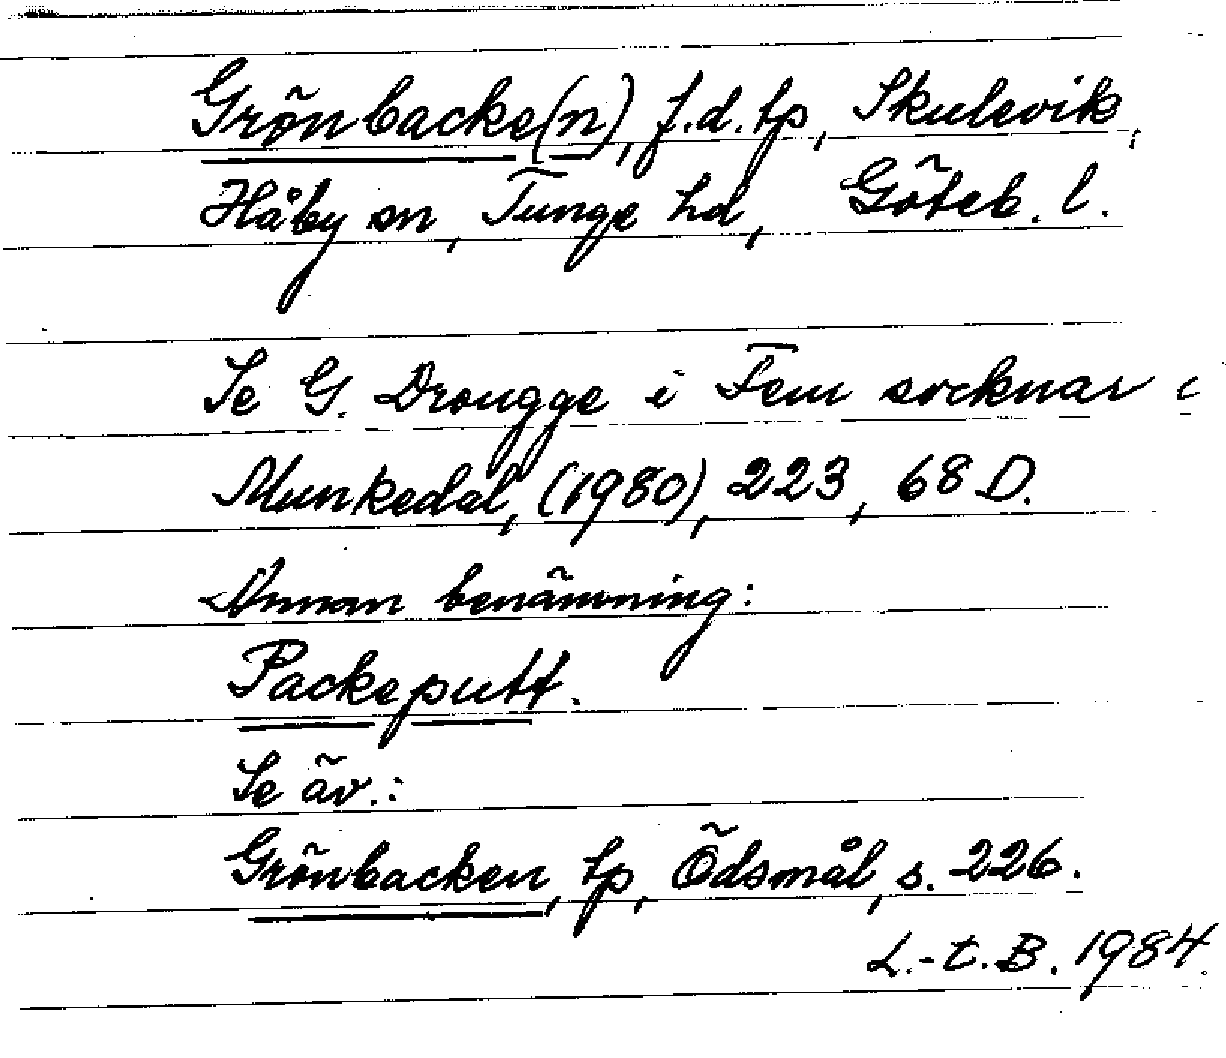 Grönbacke(n), f.d. tp, Skulevik,
Håby sn, Tunge hd, Göteb. l.
Se G. Drougge i Fem socknar i
Munkedal, (1980), 223, 68 D.
Annan benämning:
Packeputt.
Se äv.:
Grönbacken, tp, Ödsmål, s. 226.
L.-t. B. 1984.